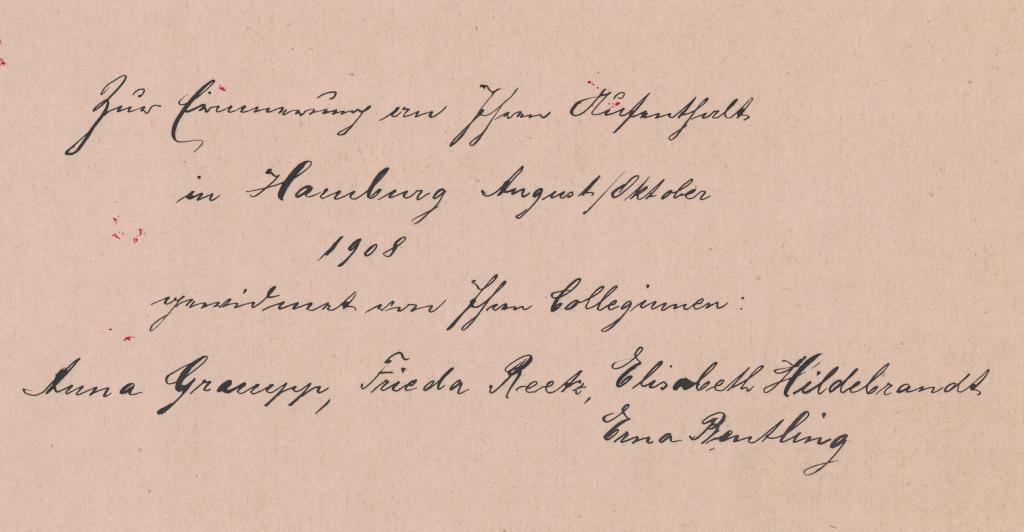 Zur Erinnerung an Ihren Aufenthalt
in Hamburg August/Oktober
1908
gewidmet von Ihren Colleginnen:
Anna Graupp, Frieda Reetz, Elisabeth Hildebrandt
Erna Rentling